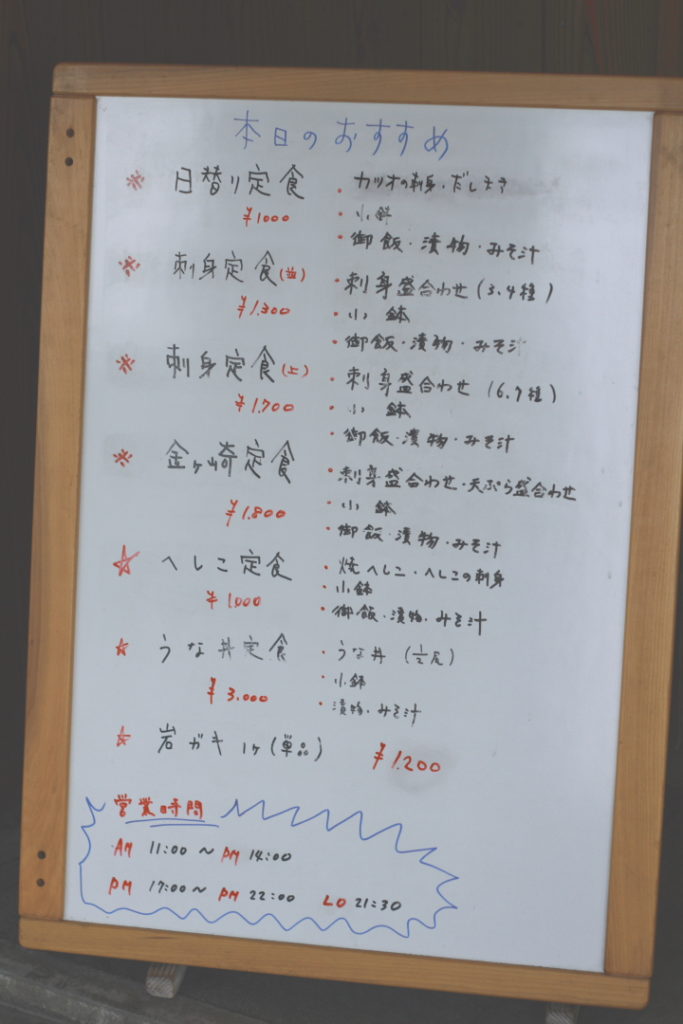 本日のおすすめ
※ 日替り定食 ・カツオの刺身・だし
¥1000 ・小鉢
・御飯・漬物・みそ汁
※ 刺身定食(並) ・刺身盛合わせ(3.4種)
¥1.300 ・小鉢
・御飯・漬物・みそ汁
※ 刺身定食(上) ・刺身盛合わせ(6.7種)
¥1.700 ・小鉢
・御飯・漬物・みそ汁
※ 金ヶ崎定食 ・刺身盛合わせ・天ぷら盛合わせ
¥1.800 ・小鉢
・御飯・漬物・みそ汁
☆ へしこ定食 ・焼へしこ・へしこの刺身
¥1.000 ・小鉢
・御飯・漬物・みそ汁
☆ うな丼定食 ・うな丼(½尾)
¥3.000 ・小鉢
・漬物・みそ汁
☆ 岩ガキ 1ヶ(単品) ¥1.200
営業時間
AM 11:00 〜 PM 14:00
PM 17:00〜 PM 22:00 LO 21:30